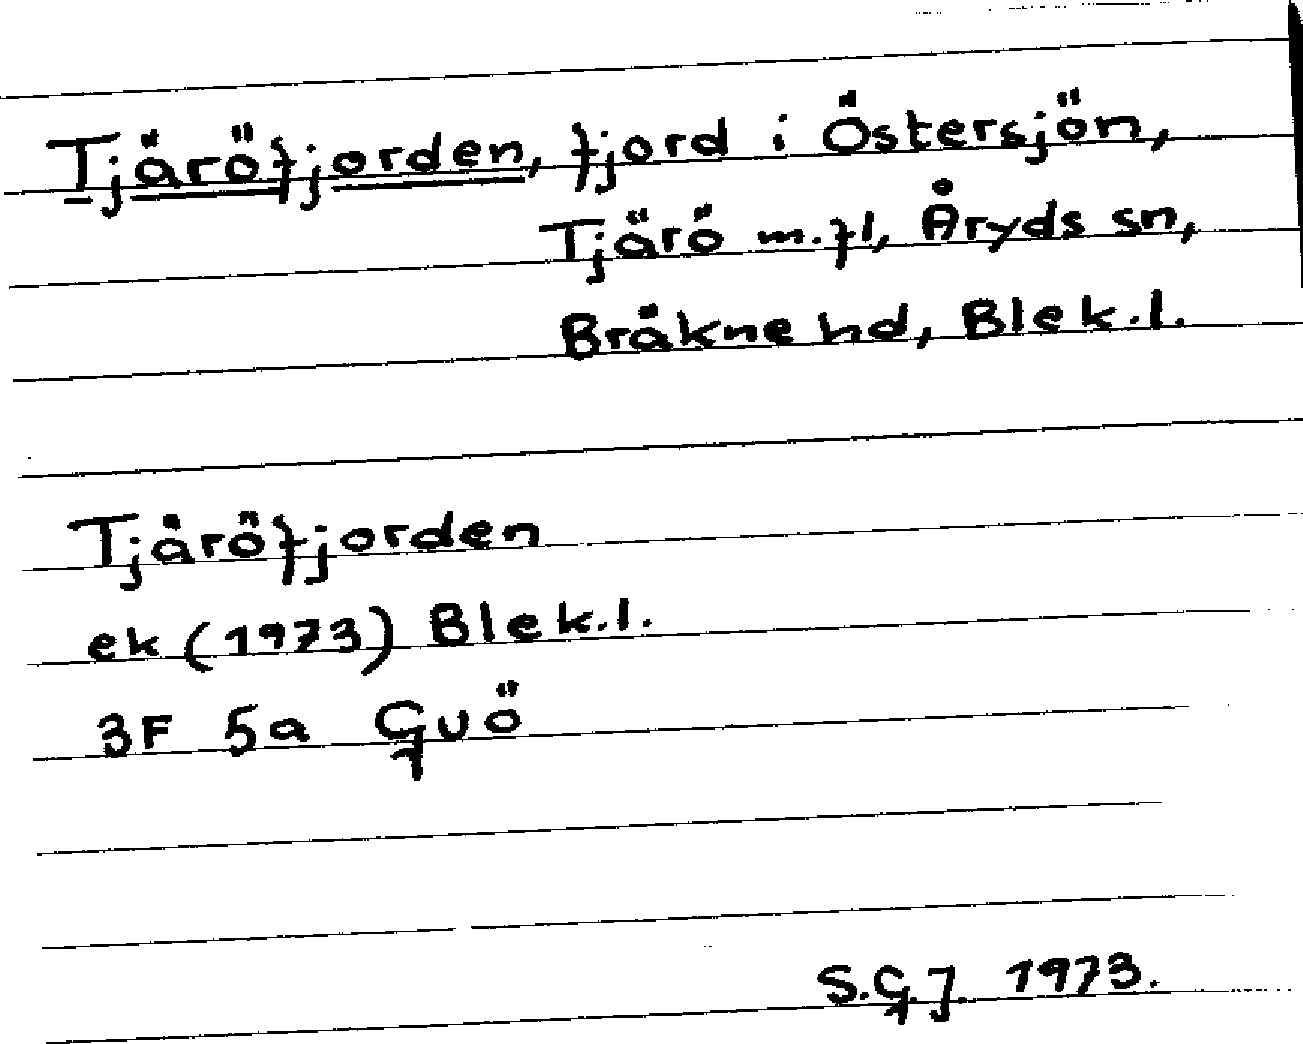 Tjäröfjorden, fjord i Östersjön,
Tjärö m.fl, Åryds sn,
Bräkne hd, Blek.l.
Tjäröfjorden
ek (1973) Blek.l.
3F 5a Guö
S.G.J. 1973.